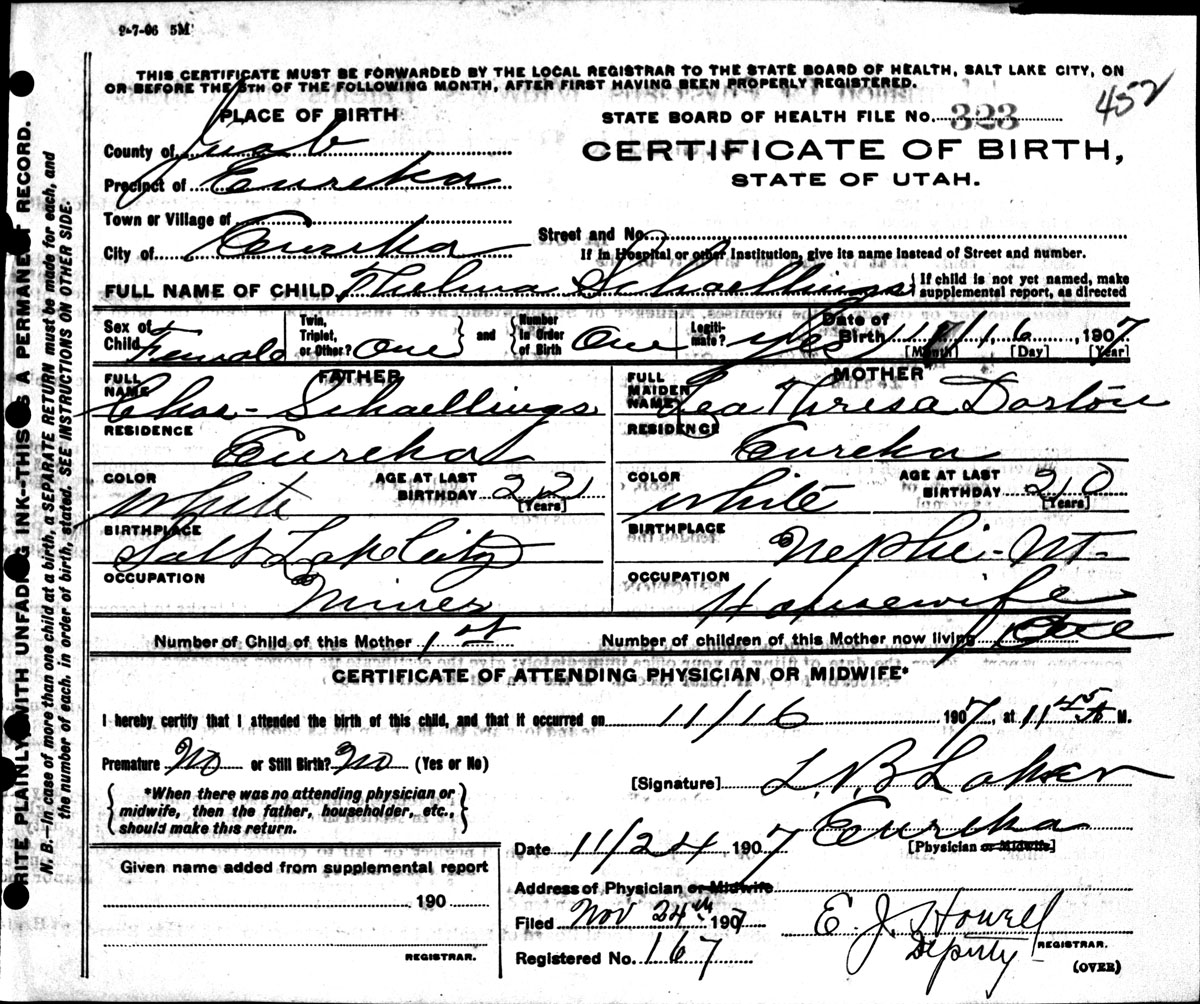 9-7-06 5M
THIS CERTIFICATE MUST BE FORWARDED BY THE LOCAL REGISTRAR TO THE STATE BOARD OF HEALTH, SALT LAKE CITY, ON
OR BEFORE THE 5TH OF THE FOLLOWING MONTH, AFTER FIRST HAVING BEEN PROPERLY REGISTERED.
452
PLACE OF BIRTH
STATE BOARD OF HEALTH FILE No. 323
County of Juab
CERTIFICATE OF BIRTH,
STATE OF UTAH.
Precinct of Eureka
Town or Village of
City of Eureka
Street and No.
If in Hospital or other Institution, give its name instead of Street and number.
FULL NAME OF CHILD Thelma Schaellings
{ If child is not yet named, make
supplemental report, as directed
Sex of Child Female
Twin, Triplet, or Other? One } and { Number in Order of Birth One
Legitimate? Yes
Date of Birth 11 / 16, 1907
[Month] [Day] [Year]
FATHER
FULL NAME Chas- Schaellings
RESIDENCE Eureka
COLOR White
AGE AT LAST BIRTHDAY 21
[Years]
BIRTHPLACE Salt Lake City
OCCUPATION Miner
MOTHER
FULL MAIDEN NAME Lea Thresa Dorton
RESIDENCE Eureka
COLOR White
AGE AT LAST BIRTHDAY 20
[Years]
BIRTHPLACE Nephi-Ut-
OCCUPATION Housewife
Number of Child of this Mother 1st
Number of children of this Mother now living One
CERTIFICATE OF ATTENDING PHYSICIAN OR MIDWIFE*
I hereby certify that I attended the birth of this child, and that it occurred on 11/16 1907, at 11 45 A M.
Premature No or Still Birth? No (Yes or No)
{ *When there was no attending physician or
midwife, then the father, householder, etc.,
should make this return. }
[Signature]
Eureka
[Physician or Midwife]
Date 11/24 1907
Address of Physician or Midwife
Filed Nov 24th 1907
E. J. Howell
Deputy REGISTRAR.
Registered No. 167
(OVER)
Given name added from supplemental report
190
REGISTRAR.
RITE PLAINLY WITH UNFADING INK--THIS IS A PERMANENT RECORD.
N. B.--In case of more than one child at a birth, a SEPARATE RETURN must be made for each, and
the number of each, in order of birth, stated. SEE INSTRUCTIONS ON OTHER SIDE.